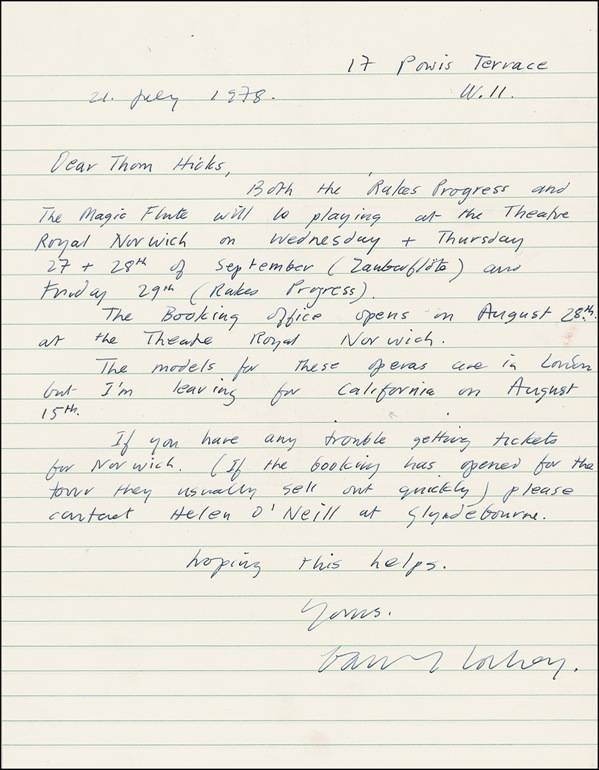 17 Powis Terrace
21. July 1978. W.11.
Dear Thom Hicks,
Both the Rakes Progress and
The Magic Flute will be playing at the Theatre
Royal Norwich on Wednesday + Thursday
27 + 28th of September (Zauberflöte) and
Friday 29th (Rakes Progress).
The Booking office opens on August 28th.
at the Theatre Royal Norwich.
The models for these operas are in London
but I'm leaving for California on August
15th.
If you have any trouble getting tickets
for Norwich. (If the booking has opened for the
tour they usually sell out quickly) please
contact Helen O'Neill at Glyndebourne.
hoping this helps.
Yours.